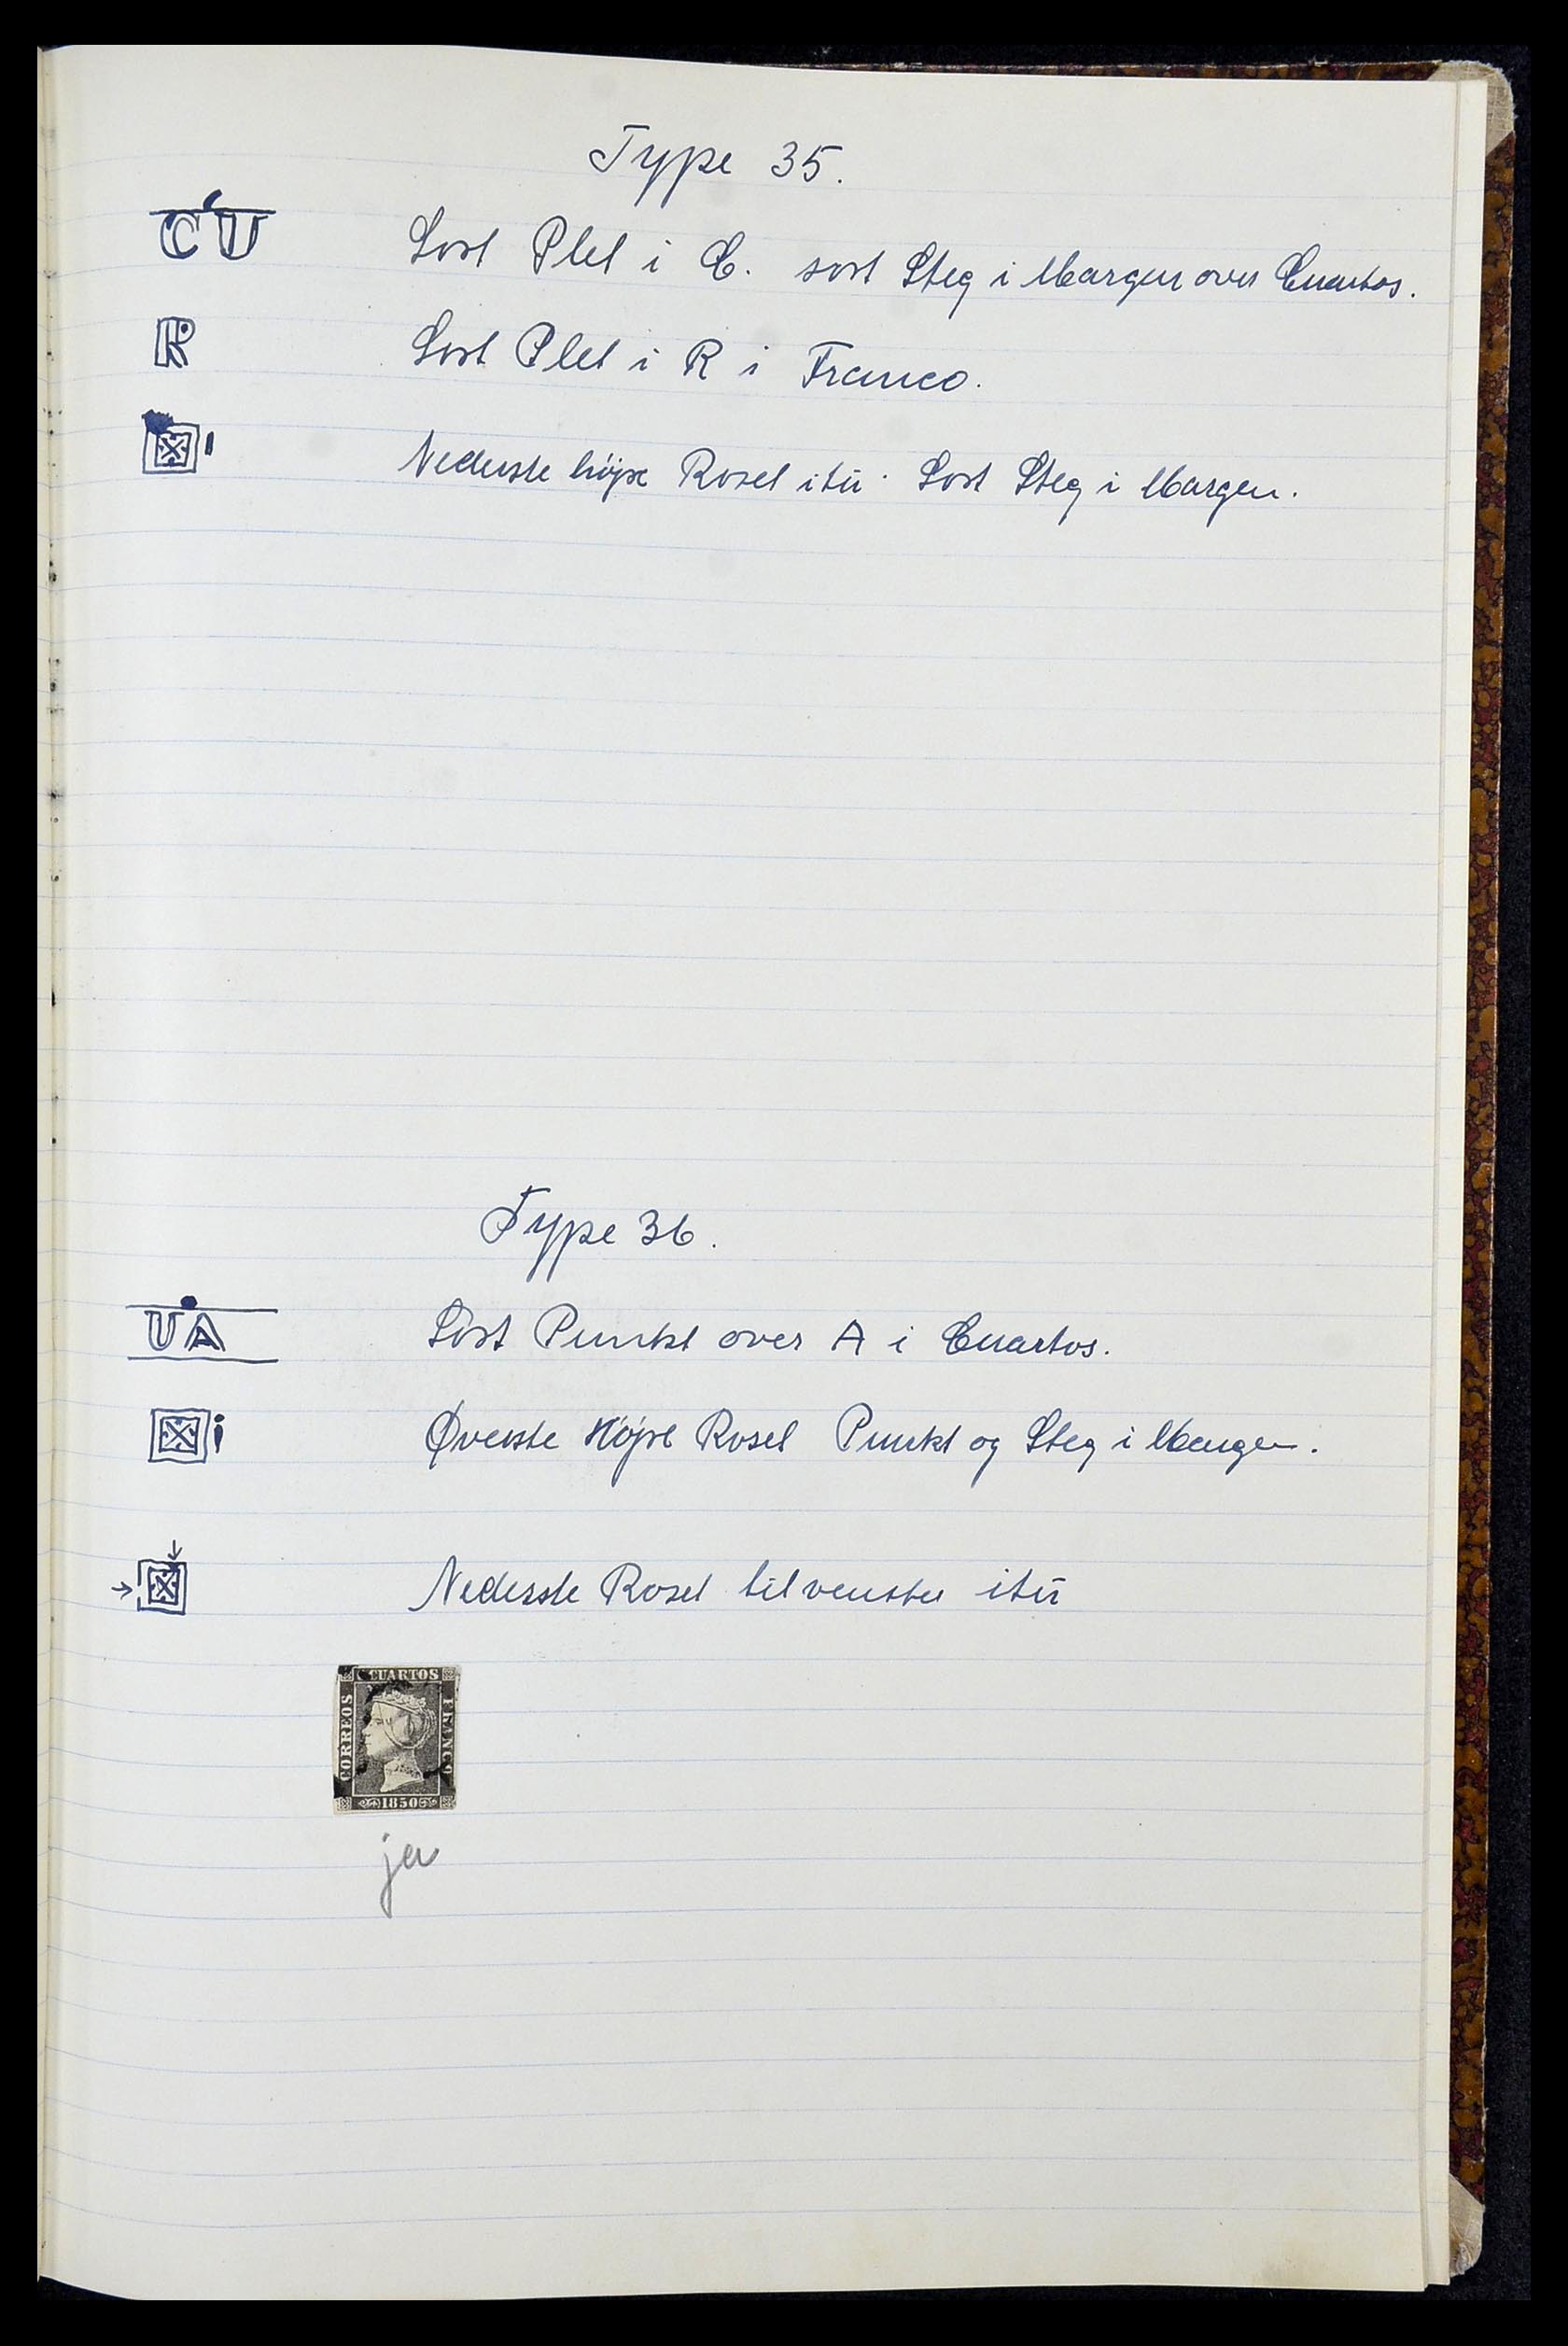 Type 35.
CU Sort Plet i C. sort Steg i Margen over Cuartos.
R Sort Plet i R i Franco.
Nederste højre Roset itu. Sort Steg i Margen.
Type 36.
UA Sort Punkt over A i Cuartos.
Øverste Højre Roset Punkt og Steg i Margen.
Nederste Roset til venstre itu
CUARTOS
CORREOS
FRANCO
1850
ja